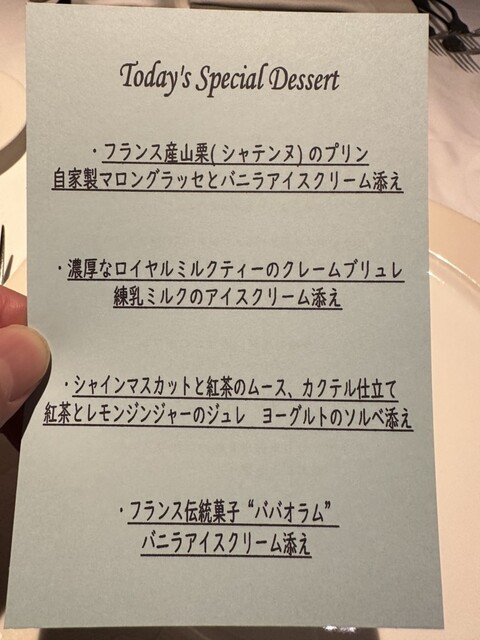 Today's Special Dessert
・フランス産山栗(シャテンヌ)のプリン
自家製マロングラッセとバニラアイスクリーム添え
・濃厚なロイヤルミルクティーのクレームブリュレ
練乳ミルクのアイスクリーム添え
・シャインマスカットと紅茶のムース、カクテル仕立て
紅茶とレモンジンジャーのジュレ　ヨーグルトのソルベ添え
・フランス伝統菓子“ババオラム”
バニラアイスクリーム添え